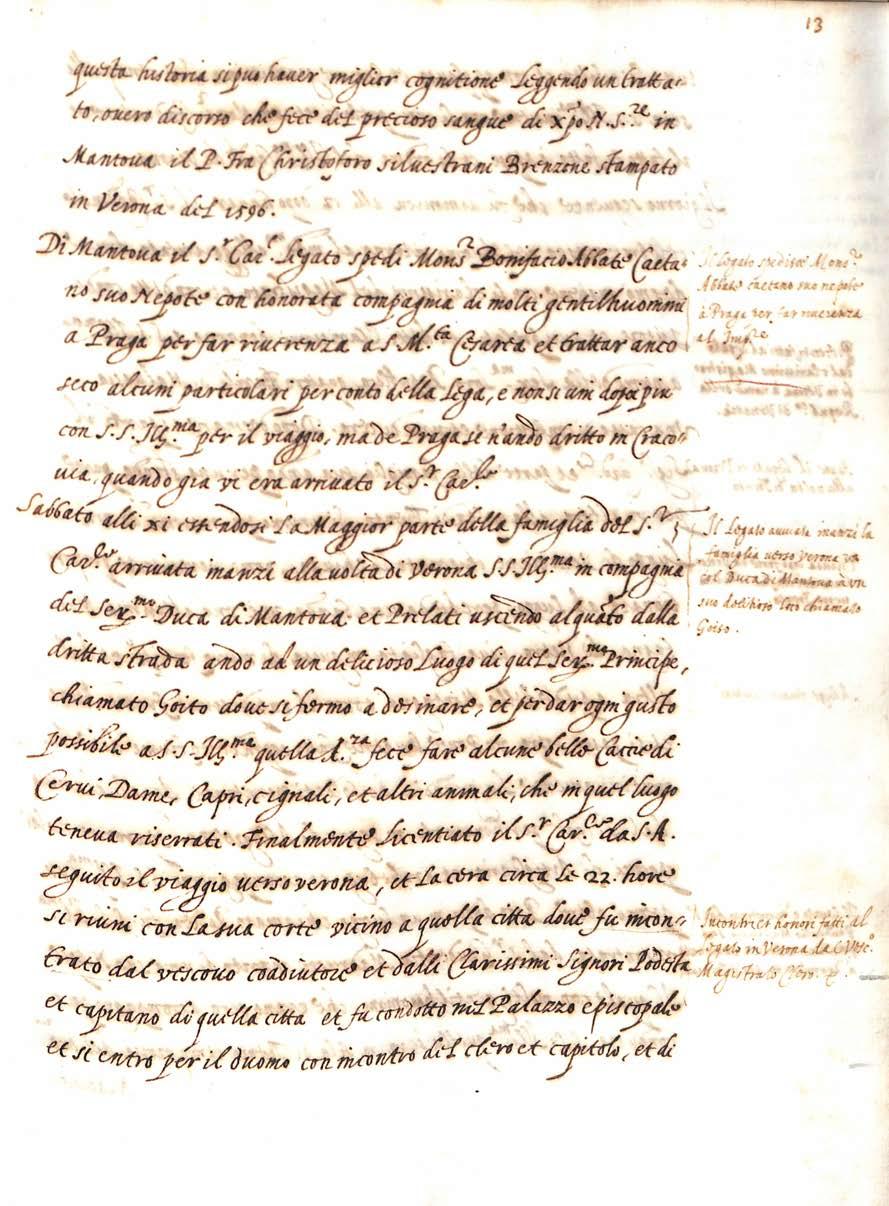 13
questa historia si puo hauer miglior cognitione Leggendo un tratta=
to, ouero discorso che fece del precioso sangue di Xp̄o N. S.re in
Mantova il P. Fra Christoforo silvestrani Brenzone stampato
in Verona del 1596.
Di Mantova il S.r Car.l legato spedi Mons.r Bonifacio Abbate Caeta=
no suo Nepote con honorata compagnia di molti gentilhuomini
a Praga per far riverenza a S. M.ta Cesarea et trattar anco
seco alcuni particolari per conto della Lega, e non si uni dopoi piu
con S. S. Ill.ma per il viaggio, ma de Praga se n'ando dritto in Craco=
via, quando gia vi era arrivato il S.r Car.le
Sabbato alli xi essendosi La Maggior parte della famiglia del S.r
Car.le arrivata inanzi alla volta di Verona S. S. Ill.ma in compagnia
del Ser.mo Duca di Mantova et Prelati uscendo alquāto dalla
dritta strada ando ad un delicioso Luogo di quel Ser.mo Principe,
chiamato Goito dove si fermo a desinare, et per dar ogni gusto
possibile a S. S. Ill.ma quella A.za fece fare alcune belle Caccie di
Cervi, Dame, Capri, cignali, et altri animali, che in quel luogo
teneva riserrati. Finalmente Licentiato il S.r Car.le da S. A.
seguito il viaggio verso verona, et La cera circa Le 22. hore
si riuni con La sua corte vicino a quella citta dove fu incon=
trato dal vescovo coadiutore et dalli Clarissimi Signori Podesta
et capitano di quella citta et fu condotto nel Palazzo episcopale
et si entro per il duomo con incontro del clero et capitolo, et di
Il Legato spedisce Mons.r
Abbate Caetano suo nepote
a Praga per far riverenza
al Imp.re
Il Legato auuiata inanzi la
famiglia verso verona va
col Duca di Mantova a un
suo delitioso loco chiamato
Goito.
Incontri et honori fatti al
Legato in Verona da Vesc.o
Magistrato Clero.